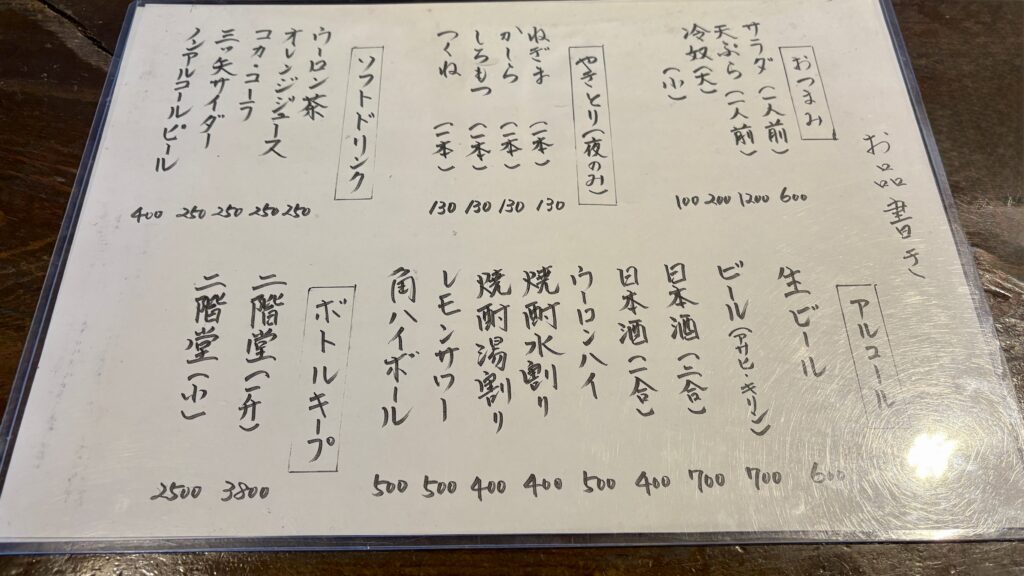 お品書き
おつまみ
サラダ(一人前) 600
天ぷら(一人前) 1200
冷奴(大) 200
(小) 100
やきとり(夜のみ)
ねぎま (一本) 130
かしら (一本) 130
しろもつ (一本) 130
つくね (一本) 130
ソフトドリンク
ウーロン茶 250
オレンジジュース 250
コカ・コーラ 250
三ッ矢サイダー 250
ノンアルコールビール 400
アルコール
生ビール 600
ビール(アサヒ・キリン) 700
日本酒(二合) 700
日本酒(一合) 400
ウーロンハイ 500
焼酎水割り 400
焼酎湯割り 400
レモンサワー 500
角ハイボール 500
ボトルキープ
二階堂(一升) 3800
二階堂(小) 2500